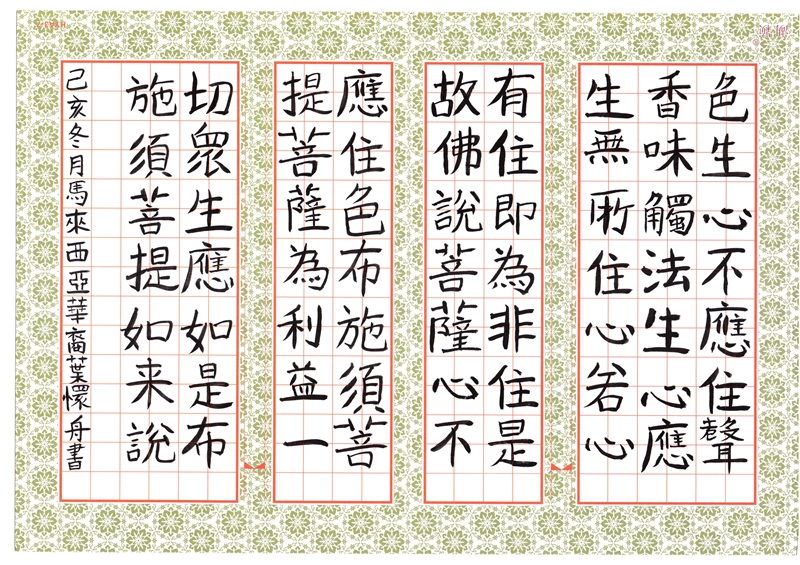 色生心不應住聲
香味觸法生心應
生無所住心若心
有住即為非住是
故佛說菩薩心不
應住色布施須菩
提菩薩為利益一
切眾生應如是布
施須菩提如来說
己亥冬月馬來西亞華裔葉懷舟書